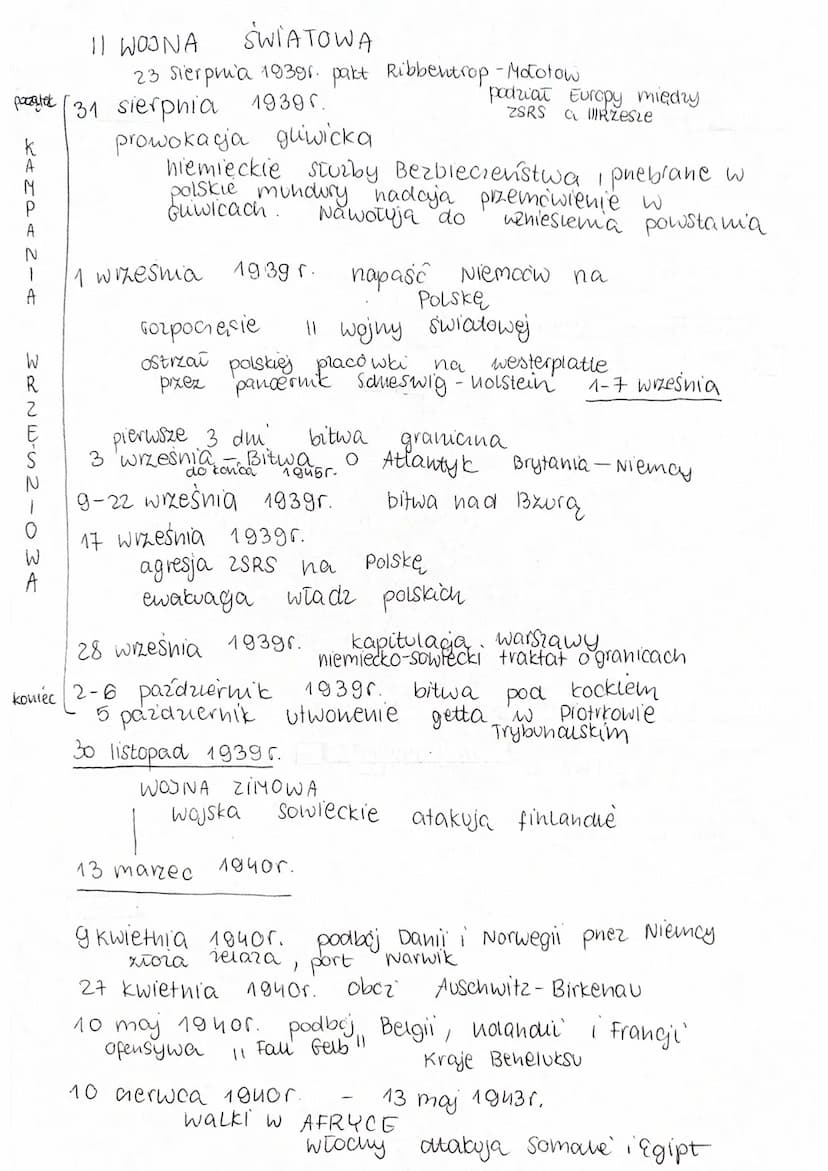 II WOJNA ŚWIATOWA
23 sierpnia 1939r. pakt Ribbentrop-Mołotow
podział Europy między
ZSRS a III Rzesze
początek
31 sierpnia 1939r.
prowokacja gliwicka
niemieckie służby Bezbieczeństwa, przebrane w
polskie mundury nadają przemówienie w
Gliwicach. Nawołują do wzniesienia powstania
KAMPANIA WRZEŚNIOWA
1 września 1939r. napaść Niemców na
Polskę
rozpoczęcie II wojny światowej
ostrzał polskiej placówki na westerplatte
przez pancernik Schleswig-Holstein 1-7 września
pierwsze 3 dni bitwa graniczna
3 września - Bitwa o Atlantyk Brytania - Niemcy
do końca 1945r.
9-22 września 1939r. bitwa nad Bzurą
17 września 1939r.
agresja ZSRS na Polskę
ewakuacja władz polskich
28 września 1939r. kapitulacja warszawy
niemiecko-sowiecki traktat o granicach
koniec
2-6 październik 1939r. bitwa pod kockiem
5 październik utworzenie getta w Piotrkowie
Trybunalskim
30 listopad 1939r.
WOJNA ZIMOWA
wojska sowieckie atakują finlandie
13 marzec 1940r.
9 kwietnia 1940r. podbój Danii i Norwegii przez Niemcy
złoża żelaza, port Narwik
27 kwietnia 1940r. obóz Auschwitz-Birkenau
10 maj 1940r. podbój Belgii, Holandii i Francji
Ofensywa "Fall Gelb"
Kraje Beneluksu
10 czerwca 1940r. - 13 maj 1943r.
WALKI W AFRYCE
Włochy atakują Somalie i Egipt